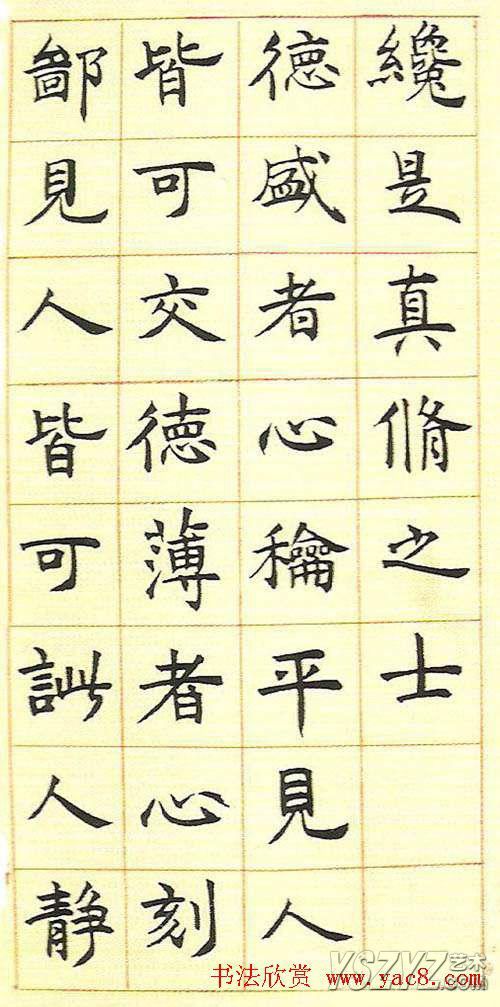 纔是真脩之士
德盛者心龢平見人
皆可交德薄者心刻
鄙見人皆可訿人靜
书法欣赏 www.yac8.com